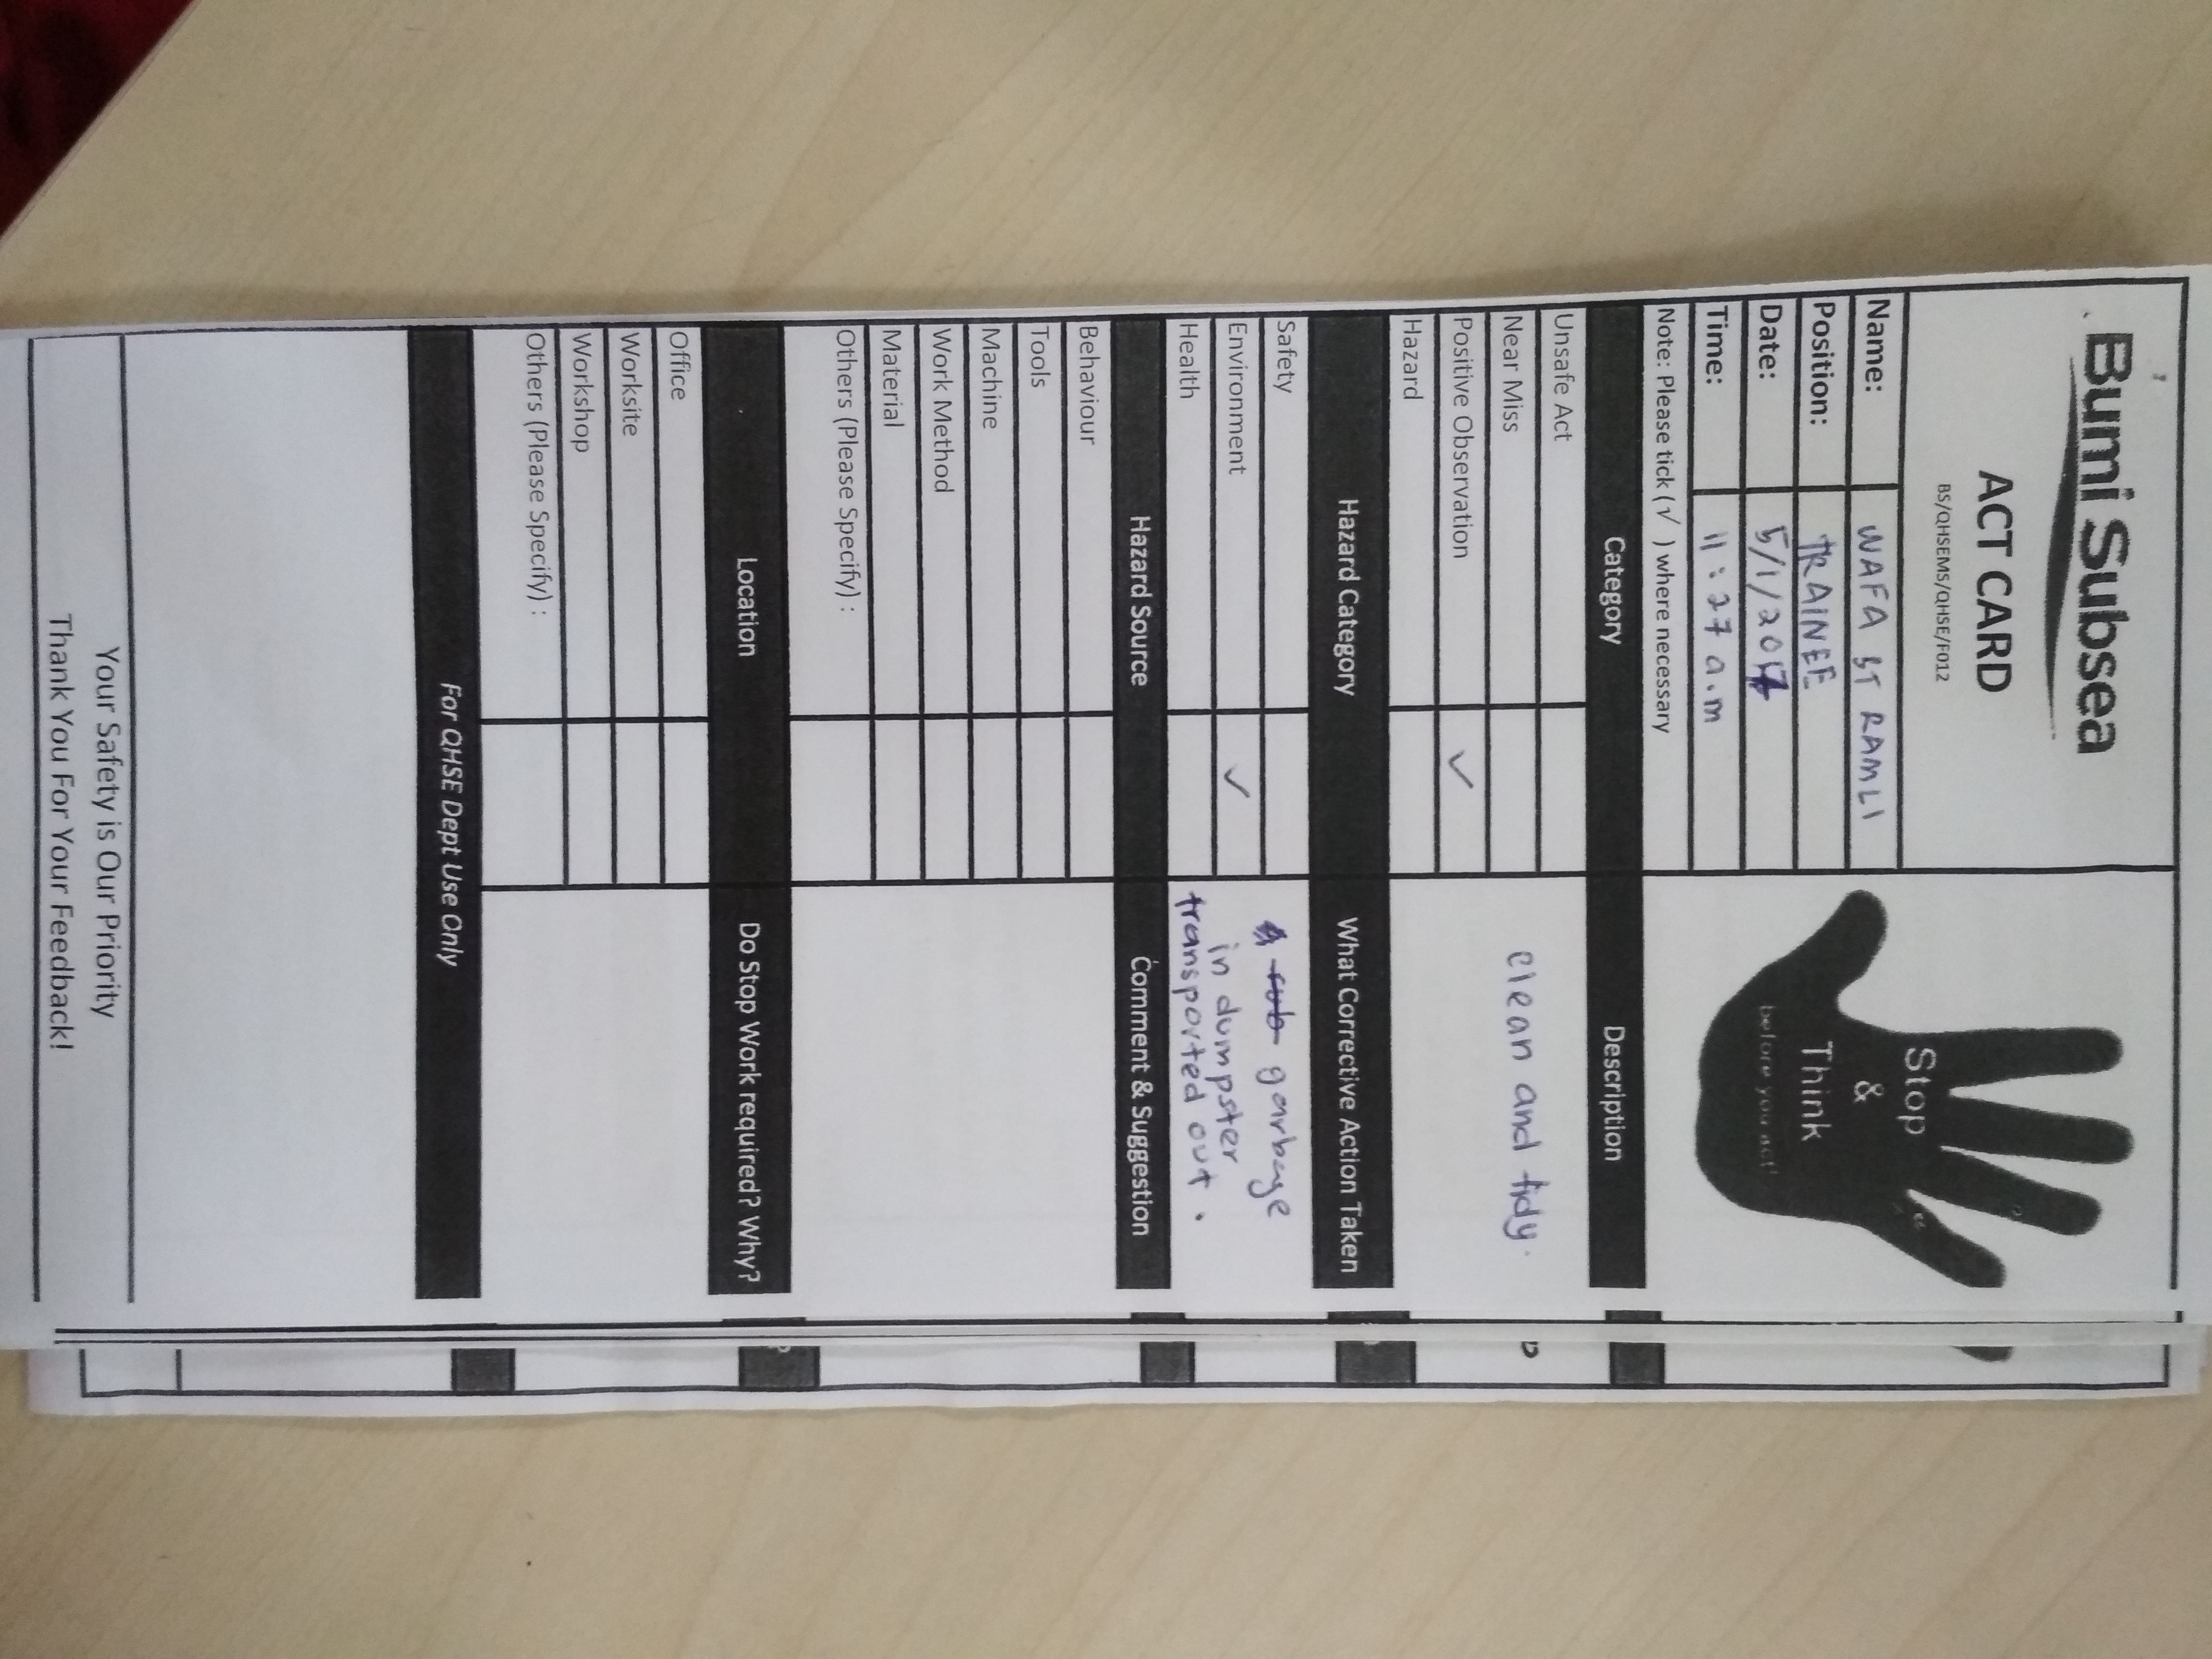 Bumi Subsea
ACT CARD
BS/QHSEMS/QHSE/F012
Stop
&
Think
before you act!
Name: WAFA BT RAMLI
Position: TRAINEE
Date: 5/1/2017
Time: 11:27 a.m
Note: Please tick (√ ) where necessary
Category Description
Unsafe Act
Near Miss
clean and tidy.
Positive Observation ✓
Hazard
Hazard Category What Corrective Action Taken
Safety
garbage
Environment ✓
in dumpster
Health
transported out.
Hazard Source Comment & Suggestion
Behaviour
Tools
Machine
Work Method
Material
Others (Please Specify) :
Location Do Stop Work required? Why?
Office
Worksite
Workshop
Others (Please Specify) :
For QHSE Dept Use Only
Your Safety is Our Priority
Thank You For Your Feedback!